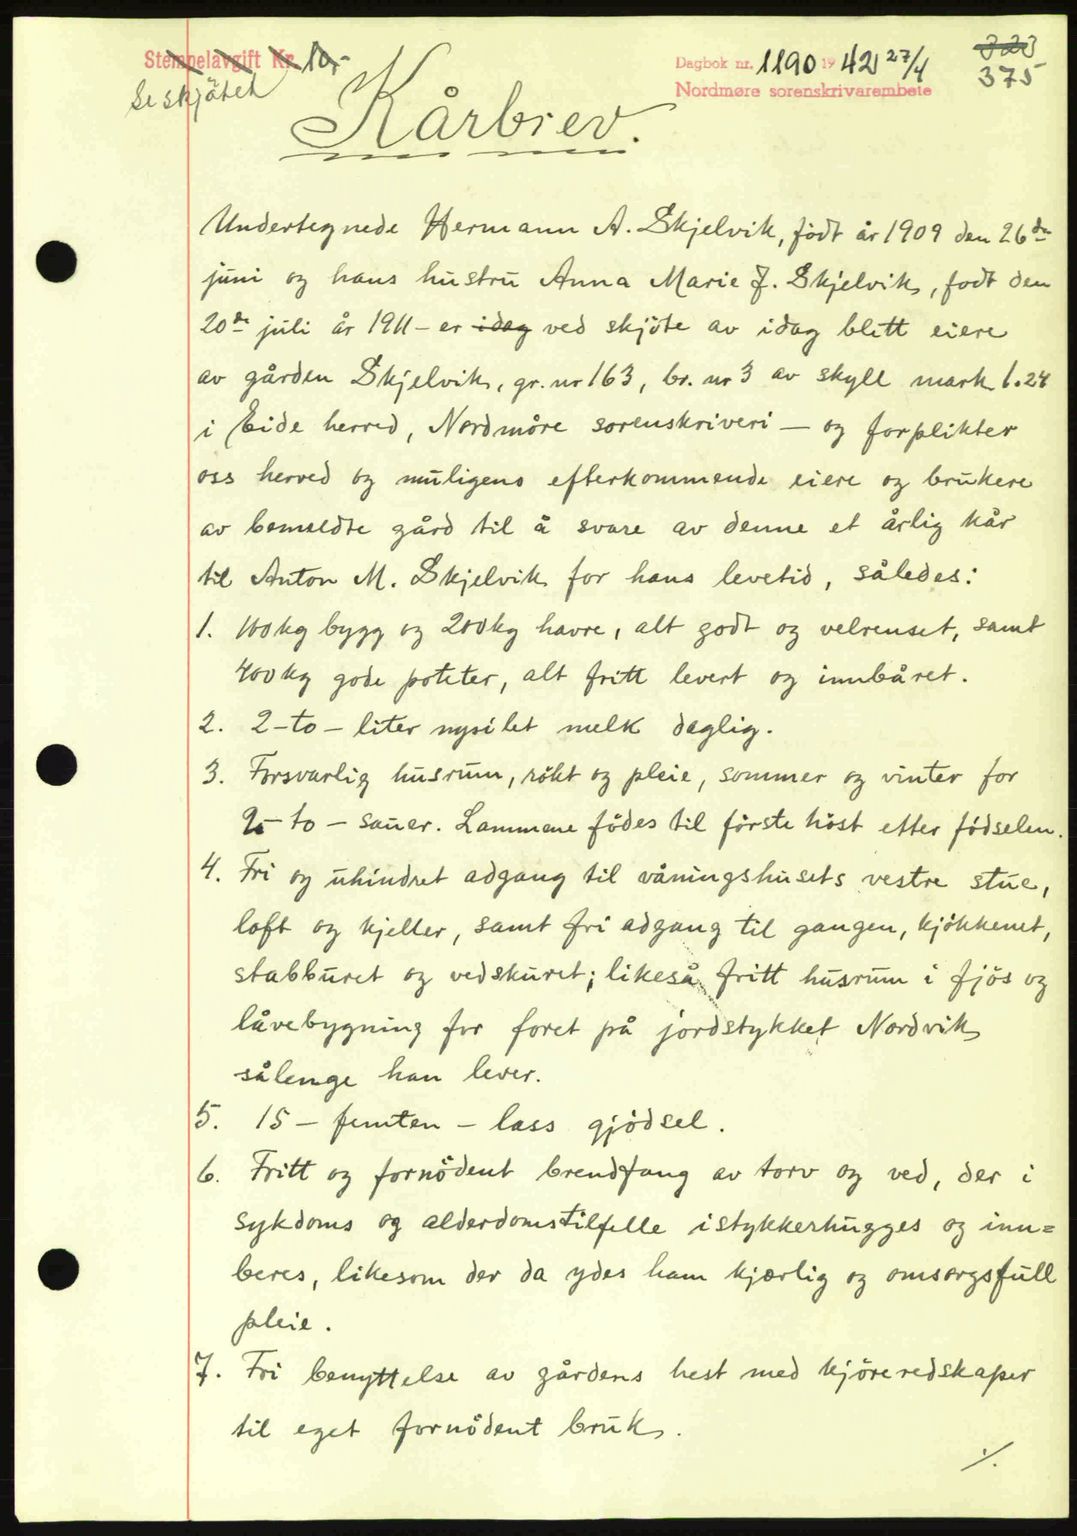 Stempelavgift Kr. 10,-
Se skjøtet
Dagbok nr. 1190 19 42 27/4
Nordmøre sorenskrivarembete
323
375
Kårbrev.
Undertegnede Hermann A. Skjelvik, født år 1909 den 26de
juni og hans hustru Anna Marie J. Skjelvik, født den
20de juli år 1911 – er idag ved skjöte av idag blitt eiere
av gården Skjelvik, gr. nr 163, br. nr 3 av skyll mark 1.24
i Eide herred, Nordmöre sorenskriveri – og forplikter
oss herved og muligens efterkommende eiere og brukere
av bemeldte gård til å svare av denne et årlig kår
til Anton M. Skjelvik for hans levetid, således:
1. 100 kg bygg og 200 kg havre, alt godt og velrenset, samt
400 kg gode poteter, alt fritt levert og innbåret.
2. 2 – to – liter nysilet melk daglig.
3. Forsvarlig husrum, rökt og pleie, sommer og vinter for
2 – to – sauer. Lammene födes til förste höst etter födselen.
4. Fri og uhindret adgang til våningshusets vestre stue,
loft og kjeller, samt fri adgang til gangen, kjökkenet,
stabburet og vedskuret; likeså fritt husrum i fjös og
låvebygning for foret på jordstykket Nordvik
sålenge han lever.
5. 15 – femten – lass gjödsel.
6. Fritt og fornödent brendfang av torv og ved, der i
sykdoms og alderdomstilfelle istykkerhugges og inn=
beres, likesom der da ydes ham kjærlig og omsorgsfull
pleie.
7. Fri benyttelse av gårdens hest med kjöreredskaper
til eget fornödent bruk.
./.